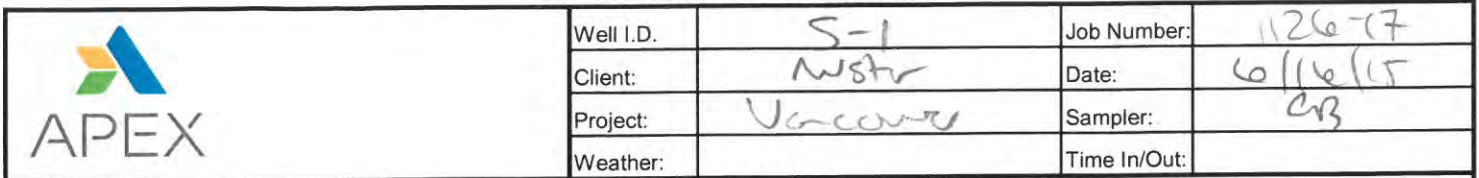 Well I.D. S-1 Job Number: 1126-17
Client: Date: 6/16/15
APEX Project: Vancouver Sampler: CB
Weather: Time In/Out: